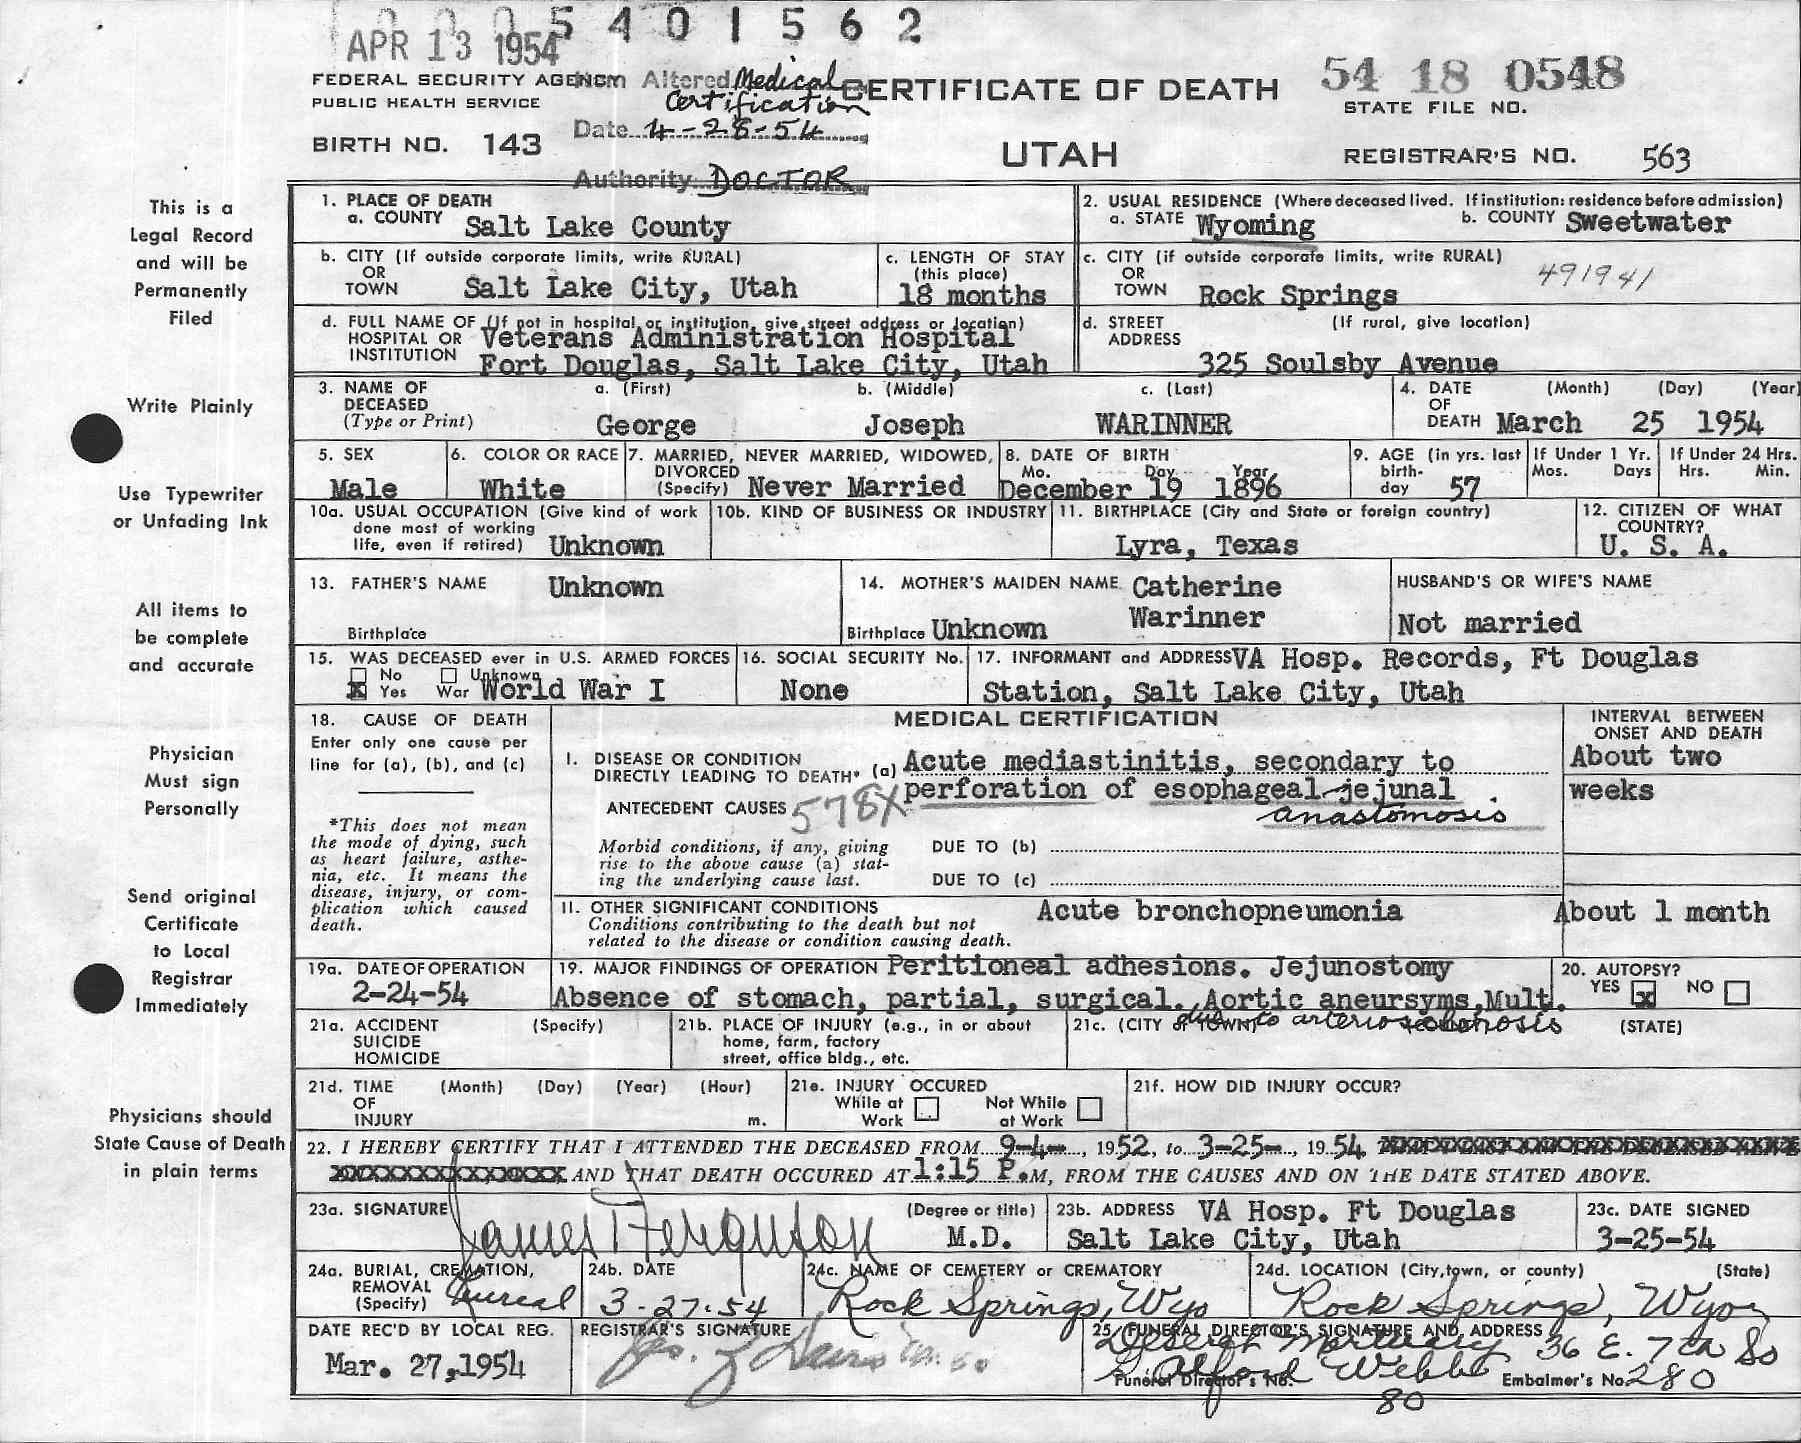 0005401562
APR 13 1954
FEDERAL SECURITY AGENCY
PUBLIC HEALTH SERVICE
BIRTH NO. 143
Item Altered Medical Certification
Date 4-28-54
Authority DOCTOR
CERTIFICATE OF DEATH
UTAH
54 18 0548
STATE FILE NO.
REGISTRAR'S NO. 563
This is a
Legal Record
and will be
Permanently
Filed
Write Plainly
Use Typewriter
or Unfading Ink
All items to
be complete
and accurate
Physician
Must sign
Personally
Send original
Certificate
to Local
Registrar
Immediately
Physicians should
State Cause of Death
in plain terms
1. PLACE OF DEATH
a. COUNTY Salt Lake County
2. USUAL RESIDENCE (Where deceased lived. If institution: residence before admission)
a. STATE Wyoming b. COUNTY Sweetwater
b. CITY (If outside corporate limits, write RURAL)
OR
TOWN Salt Lake City, Utah
c. LENGTH OF STAY
(this place)
18 months
c. CITY (if outside corporate limits, write RURAL)
OR
TOWN Rock Springs
491941
d. FULL NAME OF (If not in hospital or institution, give street address or location)
HOSPITAL OR Veterans Administration Hospital
INSTITUTION Fort Douglas, Salt Lake City, Utah
d. STREET (If rural, give location)
ADDRESS
325 Soulsby Avenue
3. NAME OF DECEASED (Type or Print)
a. (First) b. (Middle) c. (Last)
George Joseph WARINNER
4. DATE OF DEATH (Month) (Day) (Year)
March 25 1954
5. SEX
Male
6. COLOR OR RACE
White
7. MARRIED, NEVER MARRIED, WIDOWED,
DIVORCED
(Specify) Never Married
8. DATE OF BIRTH
Mo. Day Year
December 19 1896
9. AGE (in yrs. last birthday 57
If Under 1 Yr.
Mos. Days
If Under 24 Hrs.
Hrs. Min.
10a. USUAL OCCUPATION (Give kind of work
done most of working
life, even if retired) Unknown
10b. KIND OF BUSINESS OR INDUSTRY
11. BIRTHPLACE (City and State or foreign country)
Lyra, Texas
12. CITIZEN OF WHAT
COUNTRY?
U. S. A.
13. FATHER'S NAME Unknown
Birthplace
14. MOTHER'S MAIDEN NAME Catherine
Warinner
Birthplace Unknown
HUSBAND'S OR WIFE'S NAME
Not married
15. WAS DECEASED ever in U.S. ARMED FORCES
No Unknown
X Yes War World War I
16. SOCIAL SECURITY No.
None
17. INFORMANT and ADDRESS VA Hosp. Records, Ft Douglas
Station, Salt Lake City, Utah
18. CAUSE OF DEATH
Enter only one cause per
line for (a), (b), and (c)
*This does not mean
the mode of dying, such
as heart failure, asthe-
nia, etc. It means the
disease, injury, or com-
plication which caused
death.
MEDICAL CERTIFICATION
INTERVAL BETWEEN
ONSET AND DEATH
I. DISEASE OR CONDITION
DIRECTLY LEADING TO DEATH* (a) Acute mediastinitis, secondary to
perforation of esophageal-jejunal
anastomosis
About two
weeks
ANTECEDENT CAUSES 578X
Morbid conditions, if any, giving
rise to the above cause (a) stat-
ing the underlying cause last.
DUE TO (b)
DUE TO (c)
II. OTHER SIGNIFICANT CONDITIONS
Conditions contributing to the death but not
related to the disease or condition causing death.
Acute bronchopneumonia
About 1 month
19a. DATE OF OPERATION
2-24-54
19. MAJOR FINDINGS OF OPERATION Peritioneal adhesions. Jejunostomy
Absence of stomach, partial, surgical. Aortic aneursyms, Mult.
due to arteriosclerosis
20. AUTOPSY?
YES X NO
21a. ACCIDENT (Specify)
SUICIDE
HOMICIDE
21b. PLACE OF INJURY (e.g., in or about
home, farm, factory
street, office bldg., etc.
21c. (CITY or TOWN) (STATE)
21d. TIME (Month) (Day) (Year) (Hour)
OF
INJURY m.
21e. INJURY OCCURED
While at Work
Not While at Work
21f. HOW DID INJURY OCCUR?
22. I HEREBY CERTIFY THAT I ATTENDED THE DECEASED FROM 9-4-, 1952, to 3-25-, 1954
AND THAT DEATH OCCURED AT 1:15 P.M, FROM THE CAUSES AND ON THE DATE STATED ABOVE.
23a. SIGNATURE (Degree or title)
James Ferguson M.D.
23b. ADDRESS VA Hosp. Ft Douglas
Salt Lake City, Utah
23c. DATE SIGNED
3-25-54
24a. BURIAL, CREMATION,
REMOVAL
(Specify) Bureal
24b. DATE
3-27-54
24c. NAME OF CEMETERY or CREMATORY
Rock Springs, Wyo
24d. LOCATION (City, town, or county) (State)
Rock Springs, Wyo
DATE REC'D BY LOCAL REG.
Mar. 27, 1954
REGISTRAR'S SIGNATURE
25. FUNERAL DIRECTOR'S SIGNATURE AND ADDRESS
Deseret Mortuary 36 E. 7th So
Alford Webb
Funeral Director's No. 80
Embalmer's No. 280